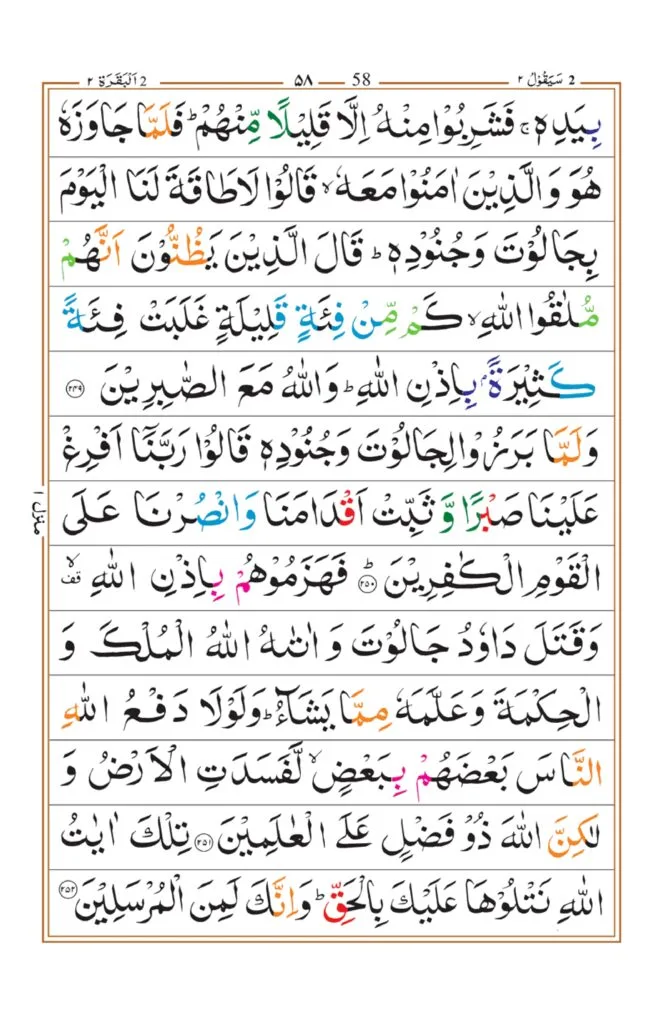 2 سَيَقُوْلُ ٢ ٥٨ 58 2 اَلْبَقَرَة ٢
بِيَدِهٖ ۚ فَشَرِبُوْا مِنْهُ اِلَّا قَلِيْلًا مِّنْهُمْ ؕ فَلَمَّا جَاوَزَهٗ
هُوَ وَالَّذِيْنَ اٰمَنُوْا مَعَهٗ ۙ قَالُوْا لَا طَاقَةَ لَنَا الْيَوْمَ
بِجَالُوْتَ وَجُنُوْدِهٖ ؕ قَالَ الَّذِيْنَ يَظُنُّوْنَ اَنَّهُمْ
مُّلٰقُوا اللّٰهِ ۙ كَمْ مِّنْ فِئَةٍ قَلِيْلَةٍ غَلَبَتْ فِئَةً
كَثِيْرَةًۢ بِاِذْنِ اللّٰهِ ؕ وَاللّٰهُ مَعَ الصّٰبِرِيْنَ ﴿۲۴۹﴾
وَلَمَّا بَرَزُوْا لِجَالُوْتَ وَجُنُوْدِهٖ قَالُوْا رَبَّنَاۤ اَفْرِغْ
عَلَيْنَا صَبْرًا وَّثَبِّتْ اَقْدَامَنَا وَانْصُرْنَا عَلَى
الْقَوْمِ الْكٰفِرِيْنَ ﴿۲۵۰﴾ؕ فَهَزَمُوْهُمْ بِاِذْنِ اللّٰهِ ۙ قف
وَقَتَلَ دَاوٗدُ جَالُوْتَ وَاٰتٰٮهُ اللّٰهُ الْمُلْكَ وَ
الْحِكْمَةَ وَعَلَّمَهٗ مِمَّا يَشَآءُ ؕ وَلَوْلَا دَفْعُ اللّٰهِ
النَّاسَ بَعْضَهُمْ بِبَعْضٍ ۙ لَّفَسَدَتِ الْاَرْضُ وَ
لٰكِنَّ اللّٰهَ ذُوْ فَضْلٍ عَلَى الْعٰلَمِيْنَ ﴿۲۵۱﴾ تِلْكَ اٰيٰتُ
اللّٰهِ نَتْلُوْهَا عَلَيْكَ بِالْحَقِّ ؕ وَاِنَّكَ لَمِنَ الْمُرْسَلِيْنَ ﴿۲۵۲﴾
منزل ١